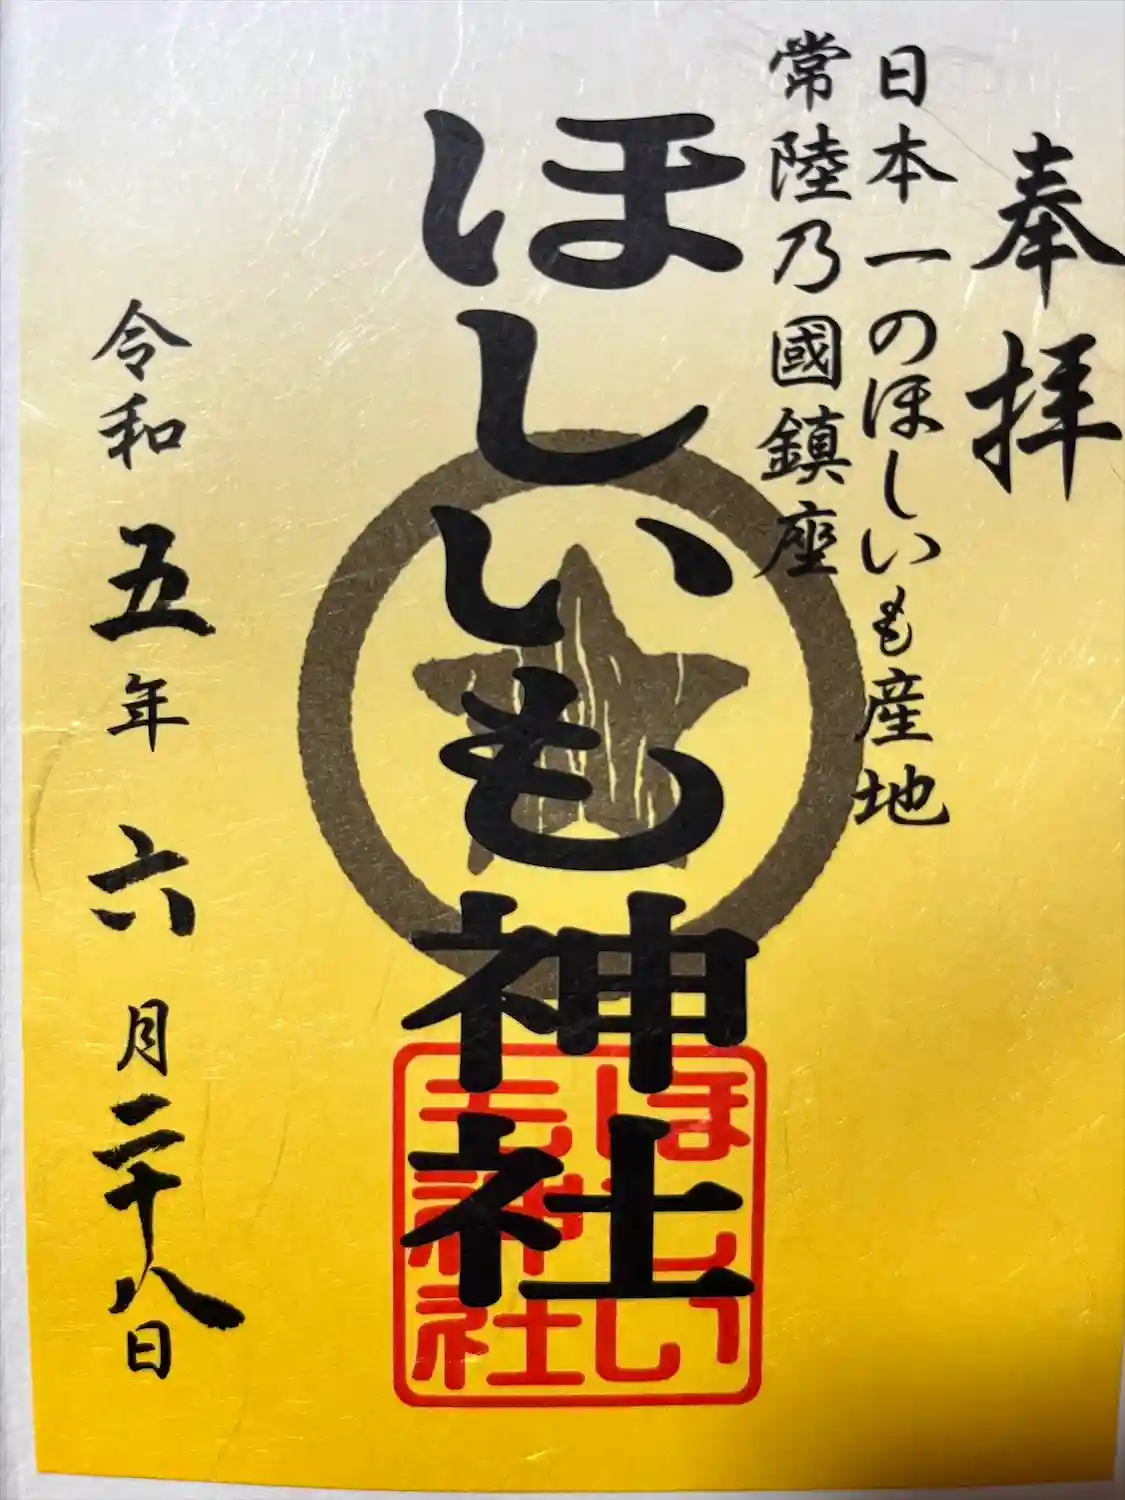 奉拝
日本一のほしいも産地
常陸乃國鎮座
ほしいも神社
ほしい
も神社
令和五年六月二十八日